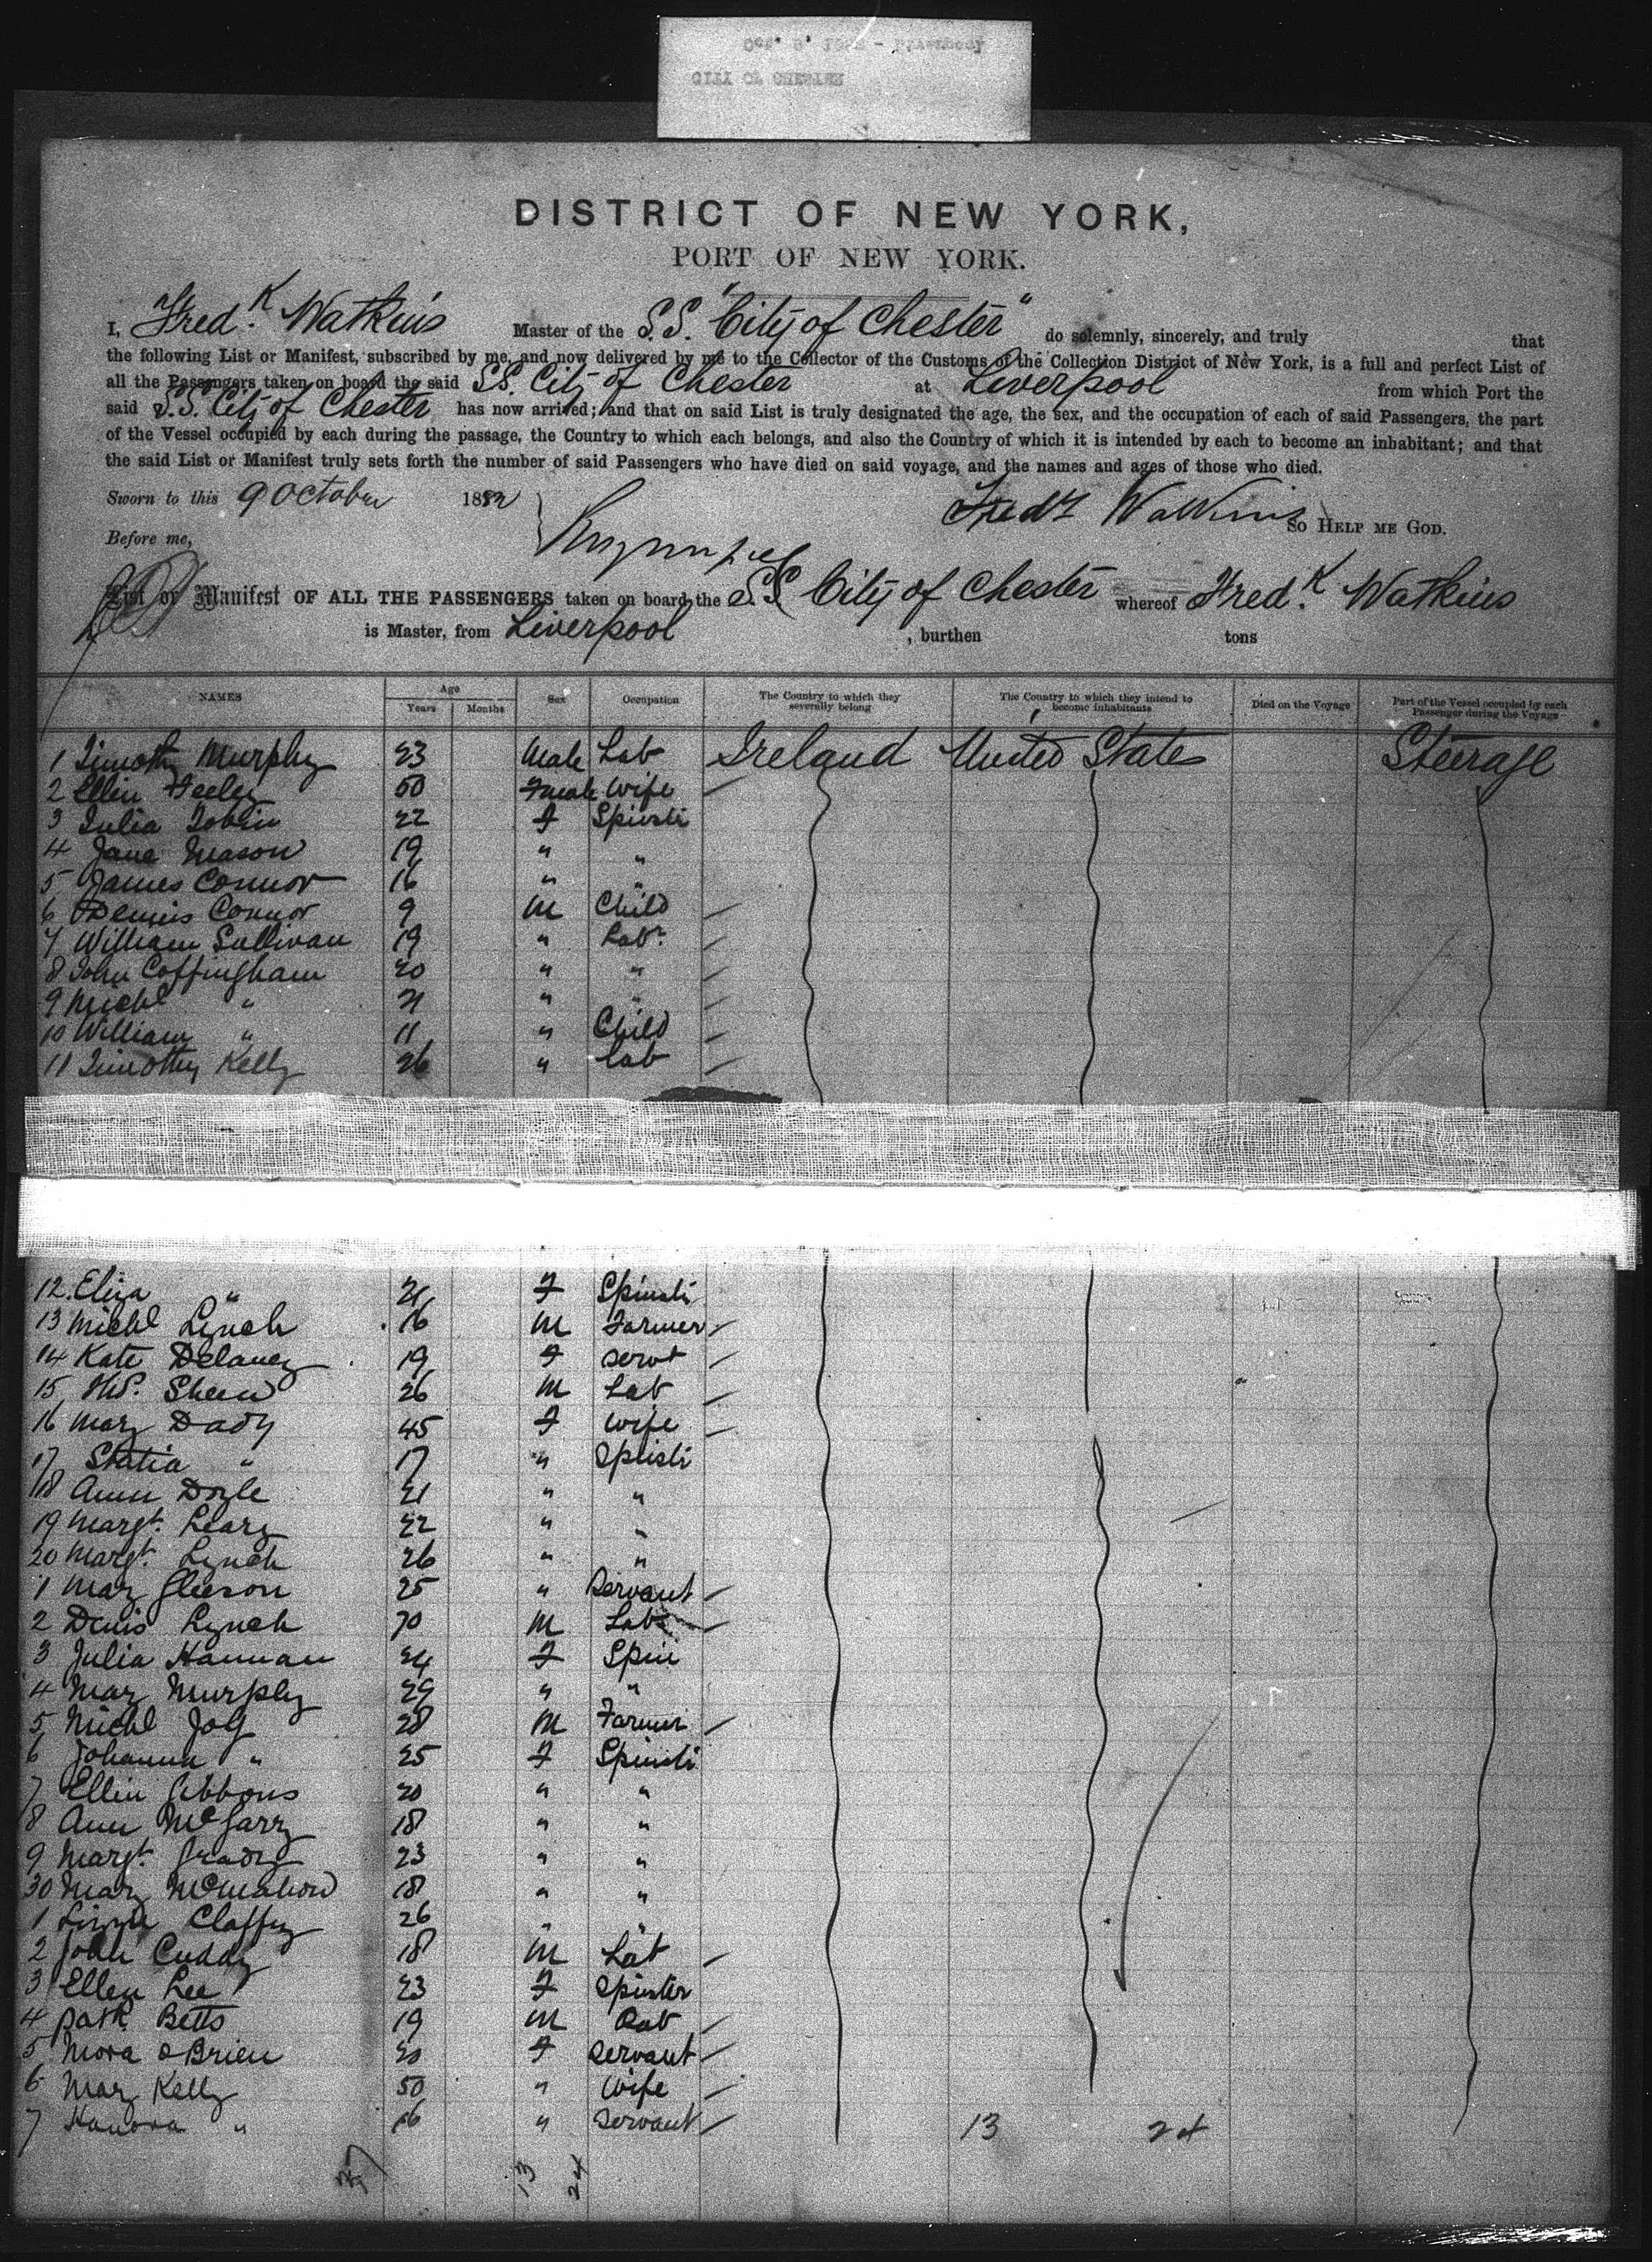 CITY OF CHESTER
DISTRICT OF NEW YORK,
PORT OF NEW YORK.
I, Fred.k Watkins Master of the S.S. "City of Chester" do solemnly, sincerely, and truly that
the following List or Manifest, subscribed by me, and now delivered by me to the Collector of the Customs of the Collection District of New York, is a full and perfect List of
all the Passengers taken on board the said S.S. City of Chester at Liverpool from which Port the
said S.S. City of Chester has now arrived; and that on said List is truly designated the age, the sex, and the occupation of each of said Passengers, the part
of the Vessel occupied by each during the passage, the Country to which each belongs, and also the Country of which it is intended by each to become an inhabitant; and that
the said List or Manifest truly sets forth the number of said Passengers who have died on said voyage, and the names and ages of those who died.
Sworn to this 9 October 1882
Fredk Watkins SO HELP ME GOD.
Before me,
List or Manifest OF ALL THE PASSENGERS taken on board the S.S. City of Chester whereof Fred.k Watkins
is Master, from Liverpool , burthen tons
NAMES Age Years Months Sex Occupation The Country to which they severally belong The Country to which they intend to become inhabitants Died on the Voyage Part of the Vessel occupied by each Passenger during the Voyage
1 Timothy Murphy 23 Male Lab Ireland United State Steerage
2 Ellin Feeley 50 Female Wife
3 Julia Tobin 22 F Spinstr
4 Jane Mason 19 " "
5 James Connor 16 " "
6 Dennis Connor 9 M Child
7 William Sullivan 19 " Labr
8 John Coffingham 20 " "
9 Michl " 21 " "
10 William " 11 " Child
11 Timothy Kelly 26 " Lab
12. Eliza " 21 F Spinstr
13 Michl Lynch 16 M Farmer
14 Kate Delaney 19 F Servt
15 Sheen 26 M Lab
16 Mary Dady 45 F Wife
17 Statia " 17 " Spistr
18 Ann Doyle 21 " "
19 Margt. Leary 22 " "
20 Margt. Lynch 26 " "
1 Mary Gleeson 25 " Servant
2 Denis Lynch 70 M Lab
3 Julia Hannan 24 F Spin
4 Mary Murphy 29 " "
5 Michl Joy 28 M Farmer
6 Johanna " 25 F Spinstr
7 Ellin Gibbons 20 " "
8 Ann McGarry 18 " "
9 Margt. Grady 23 " "
30 Mary McMahon 18 " "
1 Lizzie Claffey 26 " "
2 John Cuddy 18 M Lab
3 Ellen Lee 23 F Spinster
4 Patk. Betts 19 M Lab
5 Nora O Brien 20 F Servant
6 Mary Kelly 50 " Wife
7 Hanora " 16 " Servant
13 24
37 13 24